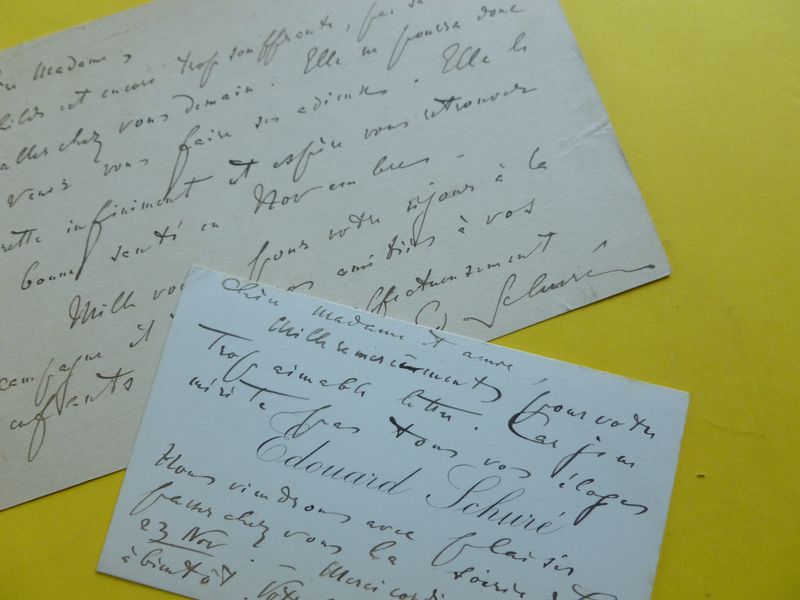 Madame,
est encore trop souffrante, j'ai
aller chez vous demain. Elle ne pourra donc
venir vous faire ses adieux. Elle le
infiniment et espère vous retrouver
bonne santé en Novembre.
Mille pour votre séjour à la
campagne et amitiés à vos
enfants affectueusement
Schuré
Chère Madame et amie,
Mille remerciements pour votre
trop aimable lettre. Car je ne
mérite pas tous vos éloges
Edouard Schuré
Nous viendrons avec plaisir
passer chez vous la soirée
23 Nov. — Merci
à bientôt. Votre